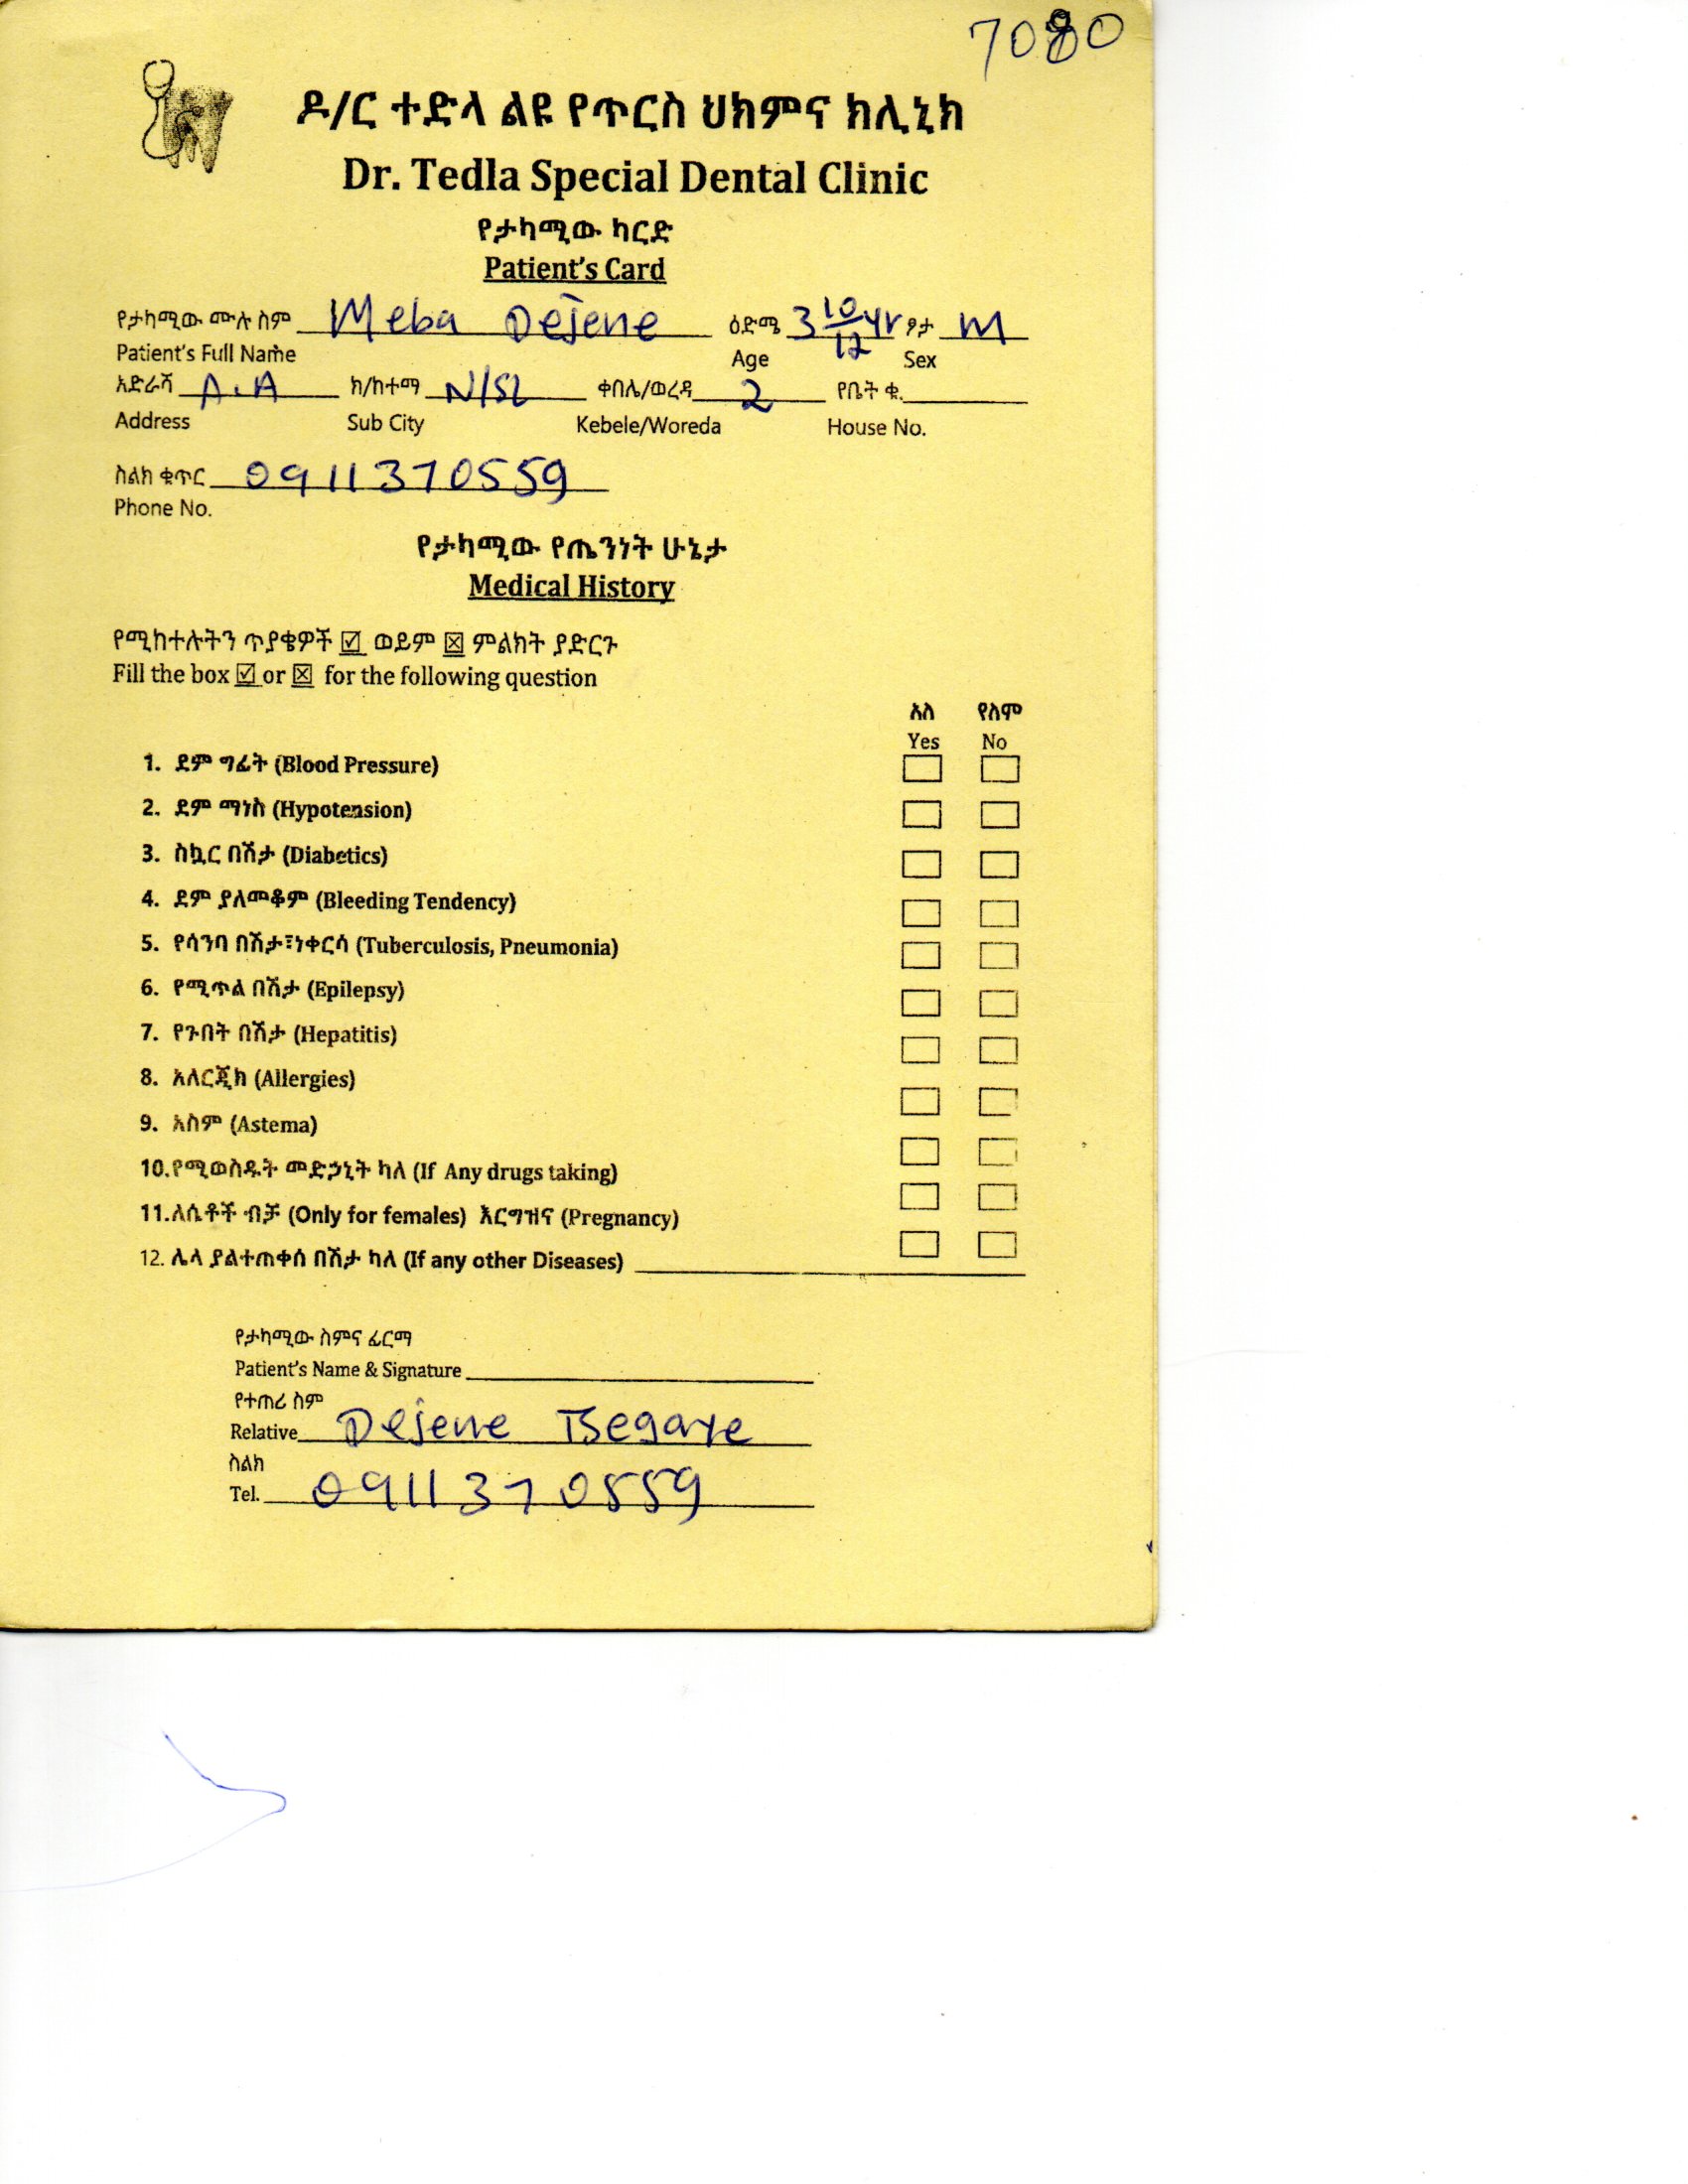 7080
ዶ/ር ተድላ ልዩ የጥርስ ህክምና ክሊኒክ
Dr. Tedla Special Dental Clinic
የታካሚው ካርድ
Patient's Card
የታካሚው ሙሉ ስም Meba Dejene ዕድሜ 3 10/12 yr ፆታ M
Patient's Full Name Age Sex
አድራሻ A.A ክ/ከተማ N/SL ቀበሌ/ወረዳ 2 የቤት ቁ.
Address Sub City Kebele/Woreda House No.
ስልክ ቁጥር 0911370559
Phone No.
የታካሚው የጤንነት ሁኔታ
Medical History
የሚከተሉትን ጥያቄዎች ☑ ወይም ☒ ምልክት ያድርጉ
Fill the box ☑ or ☒ for the following question
አለ የለም
Yes No
1. ደም ግፊት (Blood Pressure)
2. ደም ማነስ (Hypotension)
3. ስኳር በሽታ (Diabetics)
4. ደም ያለመቆም (Bleeding Tendency)
5. የሳንባ በሽታ፣ነቀርሳ (Tuberculosis, Pneumonia)
6. የሚጥል በሽታ (Epilepsy)
7. የጉበት በሽታ (Hepatitis)
8. አለርጂክ (Allergies)
9. አስም (Astema)
10.የሚወስዱት መድኃኒት ካለ (If Any drugs taking)
11.ለሴቶች ብቻ (Only for females) እርግዝና (Pregnancy)
12. ሌላ ያልተጠቀሰ በሽታ ካለ (If any other Diseases)
የታካሚው ስምና ፊርማ
Patient's Name & Signature
የተጠሪ ስም
Relative Dejene Tsegaye
ስልክ
Tel. 0911370559